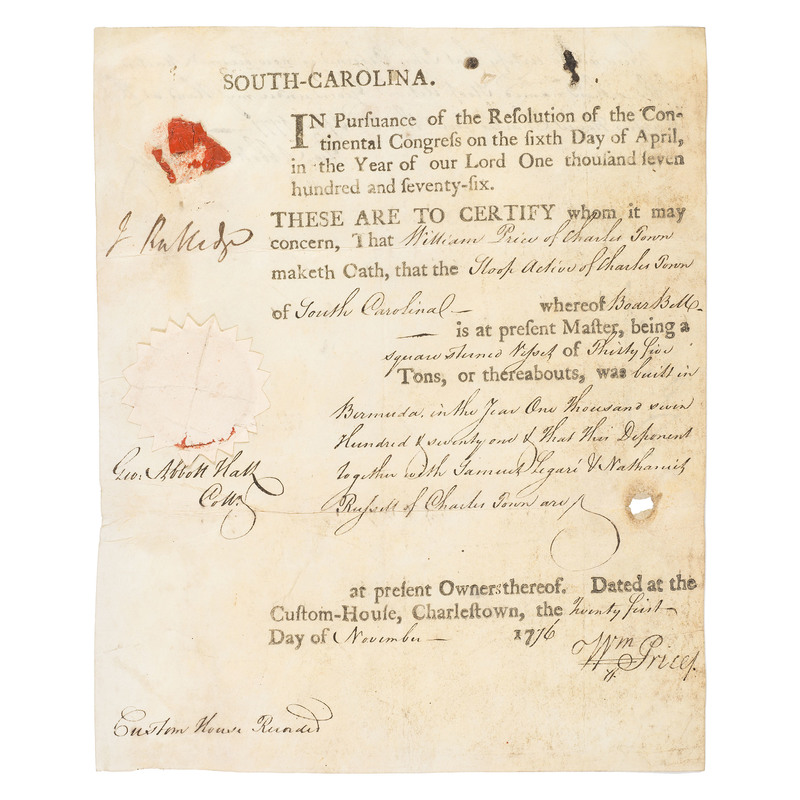 SOUTH-CAROLINA.
IN Purſuance of the Reſolution of the Con-
tinental Congreſs on the ſixth Day of April,
in the Year of our Lord One thouſand ſeven
hundred and ſeventy-ſix.
THESE ARE TO CERTIFY whom it may
concern, That William Price of Charles Town
maketh Oath, that the Sloop Active of Charles Town
of South Carolina — whereof
— is at preſent Maſter, being a
square sterned Veſsel of Thirty five
Tons, or thereabouts, was built in
Bermuda in the Year One Thousand seven
Hundred & seventy one & That This Deponent
together with Samuel Legaré & Nathaniel
Ruſsell of Charles Town are
at preſent Owners thereof. Dated at the
Cuſtom-Houſe, Charleſtown, the Twenty first
Day of November — 1776
Wm Price
J Rutledge
Geo: Abbott Hall
Collr
Custom House Recorded